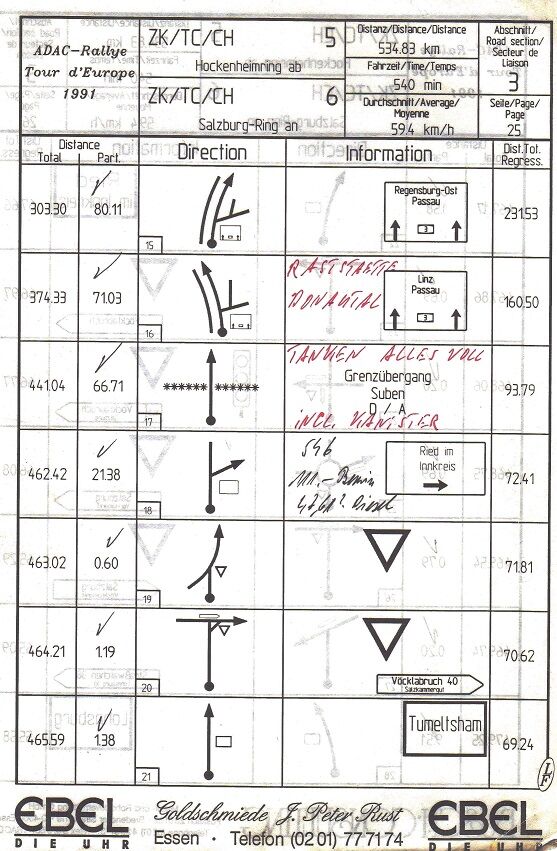 ADAC-Rallye
Tour d'Europe
1991
ZK/TC/CH 5
Hockenheimring ab
ZK/TC/CH 6
Salzburg-Ring an
Distanz/Distance/Distance
534.83 km
Fahrzeit/Time/Temps
540 min
Durchschnitt/Average/
Moyenne
59.4 km/h
Abschnitt/
Road section/
Secteur de
Liaison
3
Seite/Page/
Page
25
Distance
Total Part.
Direction
Information
Dist.Tot.
Regress.
303.30 80.11
15
Regensburg-Ost
Passau
3
231.53
374.33 71.03
16
RASTSTAETTE
DONAUTAL
Linz
Passau
3
160.50
441.04 66.71
17
TANKEN ALLES VOLL
Grenzübergang
Suben
D / A
INCL. KANISTER
93.79
462.42 21.38
18
546
111.- Benzin
Diesel
Ried im
Innkreis
72.41
463.02 0.60
19
71.81
464.21 1.19
20
Vöcklabruck 40
Salzkammergut
70.62
465.59 1.38
21
Tumeltsham
69.24
EBEL
DIE UHR
Goldschmiede J. Peter Rust
Essen · Telefon (02 01) 77 71 74
EBEL
DIE UHR